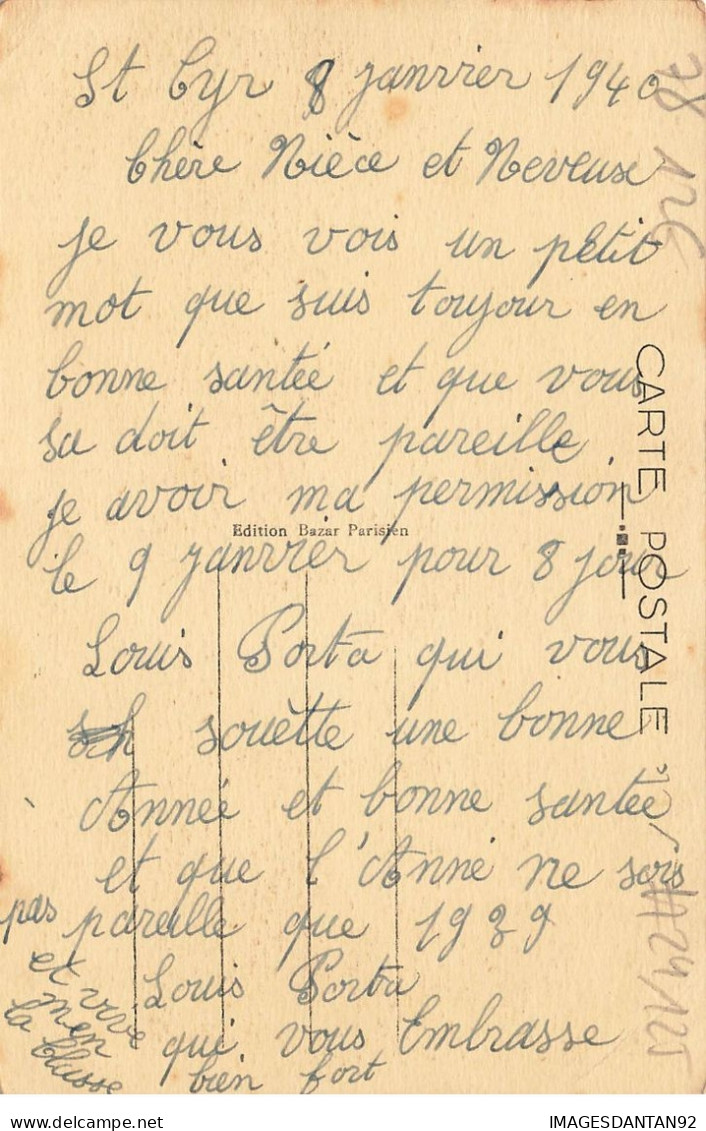 St Cyr 8 janvier 1940
Chère Nièce et Neveux
je vous vois un petit
mot que suis toujour en
bonne santée et que vous
sa doit être pareille
je avoir ma permission
Edition Bazar Parisien
le 9 janvrier pour 8 jour
Louis Porta qui vous
souètte une bonne
Année et bonne santée
et que l'Anné ne sois
pas pareille que 1939
Louis Porta
qui vous Embrasse
bien fort
et vive
la Clusse
CARTE POSTALE
78 126
IMAGESDANTAN92